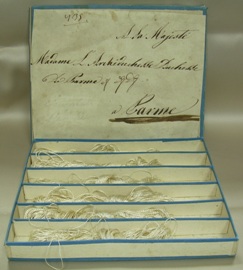 A Sa Majesté
Madame L'Archiduchesse Duchesse
de Parme
à Parme